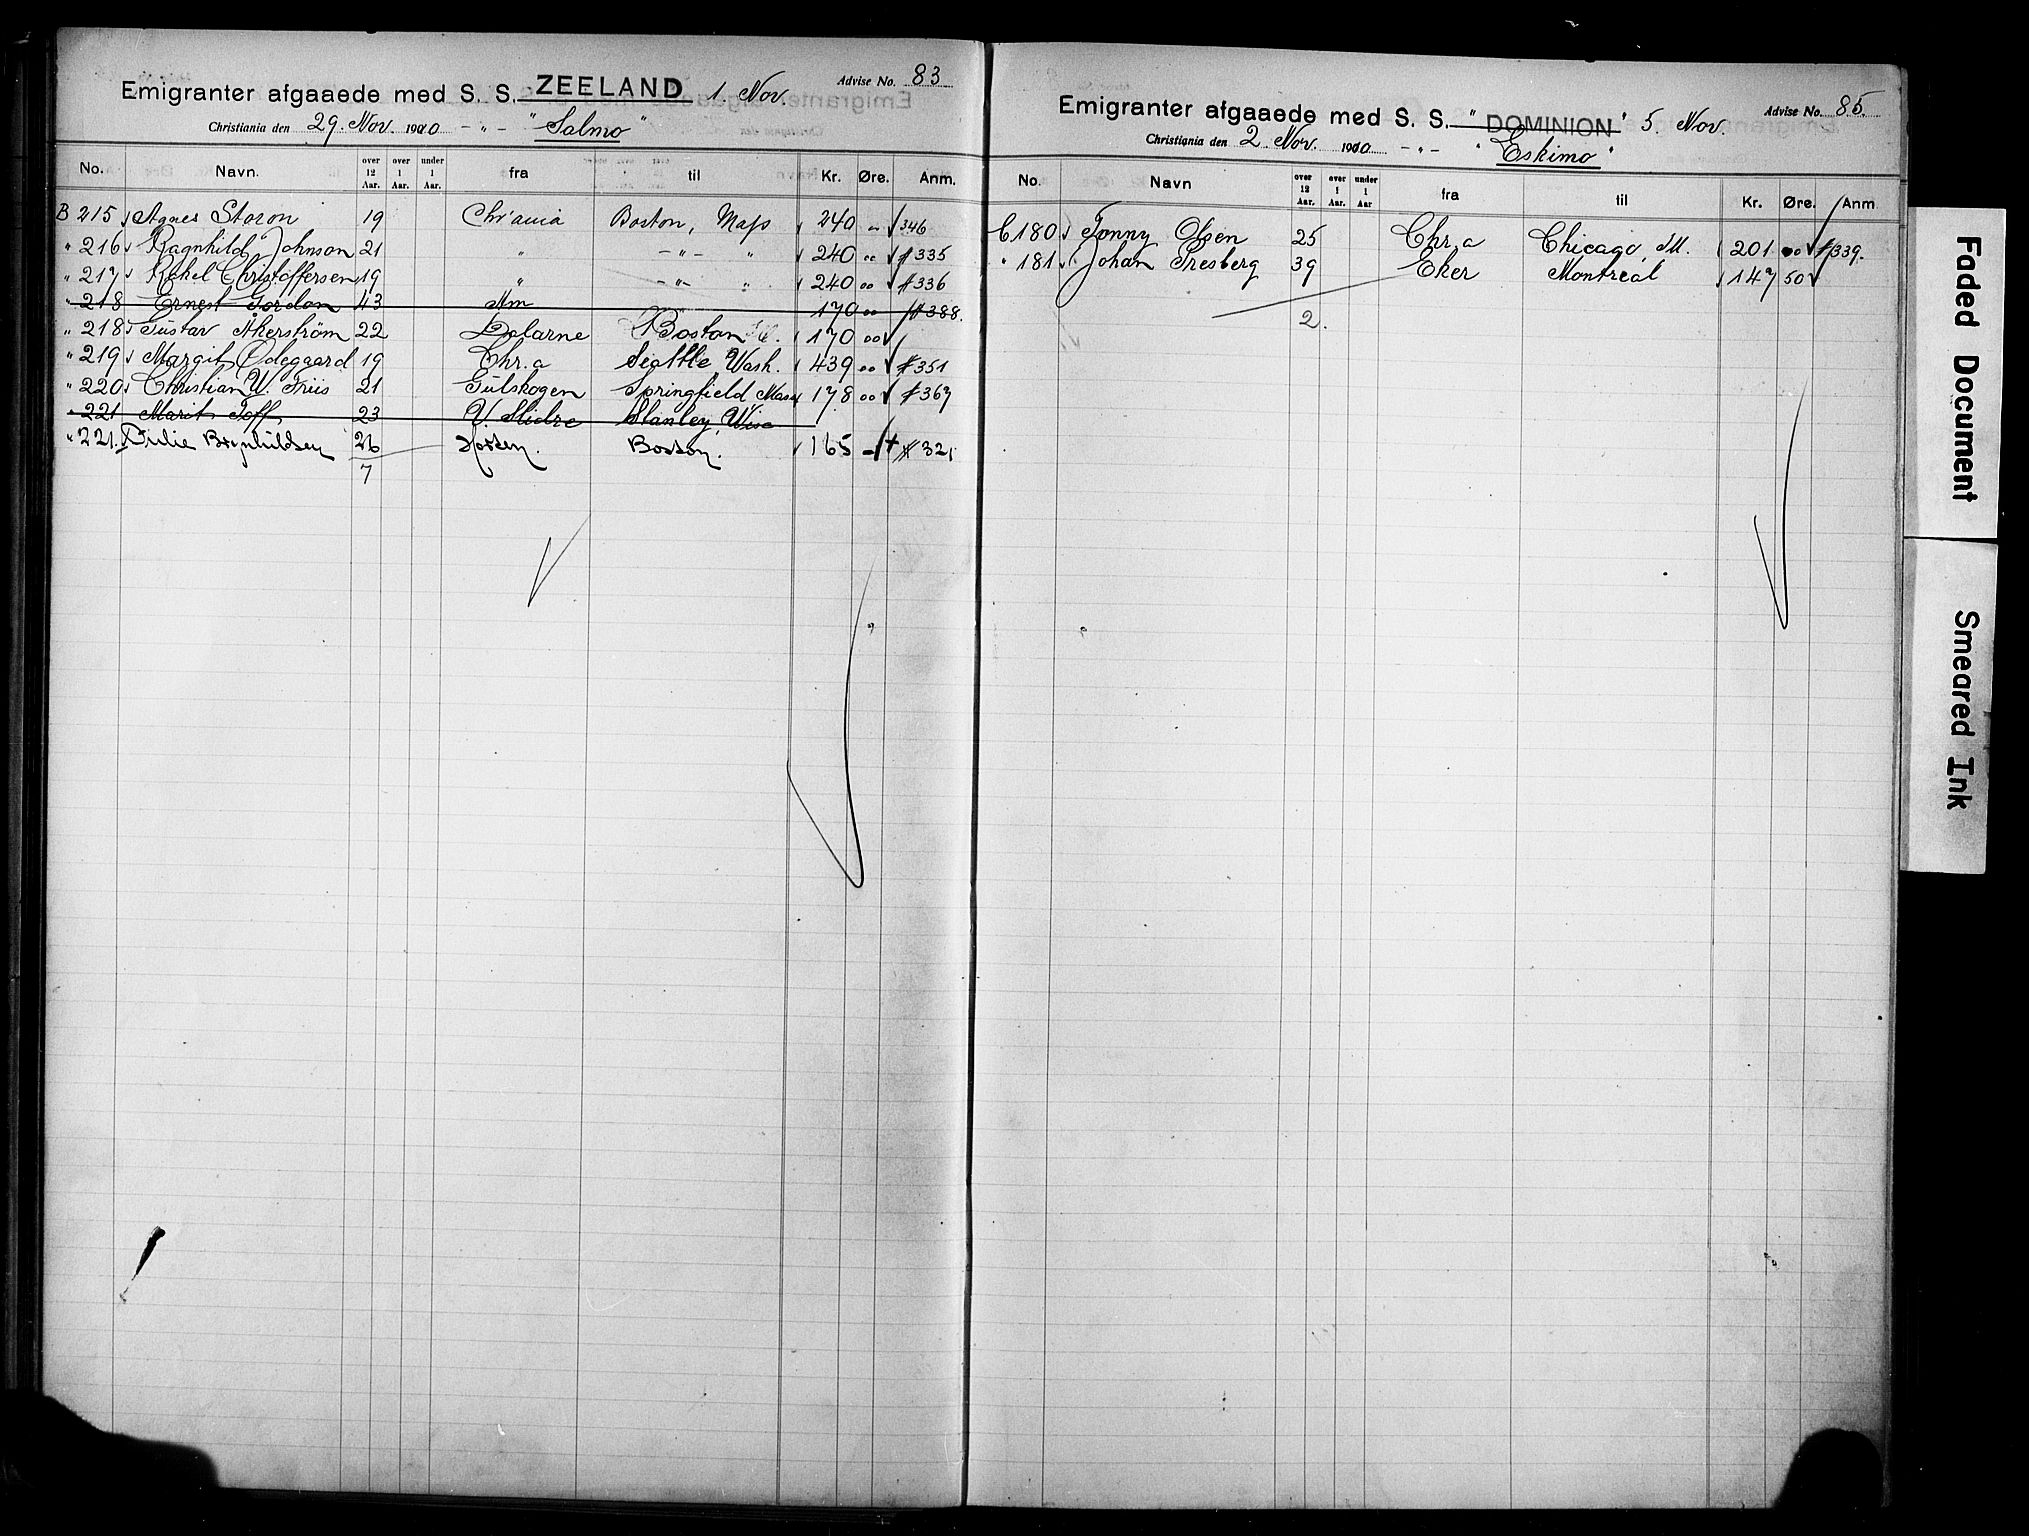 Emigranter afgaaede med S. S. ZEELAND 1. Nov. Advise No. 83
Christiania den 29. Nov. 1900 - " - "Salmo"
No. Navn. over 12 Aar. over 1 Aar. under 1 Aar. fra til Kr. Øre. Anm.
B 215 Agnes Storon 19 Chr'ania Boston, Mass 240 " 346
" 216 Ragnhild Johnson 21 " - " - " 240 00 # 335
" 217 Rakel Christoffersen 19 " - " - " 240 00 # 336
" 218 Ernest Gordon 43 Am 170 00 # 388.
" 218 Gustav Åkerström 22 Dalarne Boston 170 00
" 219 Margit Ødegaard 19 Chr.a Seattle Wash. 439 00 # 351
" 220 Christian W. Friis 21 Gulskogen Springfield Mass 178 00 # 367
221 Marit Toff 23 V. Slidre Stanley, Wisc
" 221. Julie Brynhildsen 26 Horten. Boston. 165 - + # 321
7
Emigranter afgaaede med S. S. "DOMINION" 5. Nov. Advise No. 85.
Christiania den 2. Nov. 1900 - " - "Eskimo"
No. Navn over 12 Aar. over 1 Aar. under 1 Aar fra til Kr. Øre. Anm
C 180 Tonny Olsen 25 Chr.a Chicago, Ill. 201 00 # 339.
" 181 Johan Presberg 39 Eker Montreal 147 50
2.
Faded Document
Smeared Ink